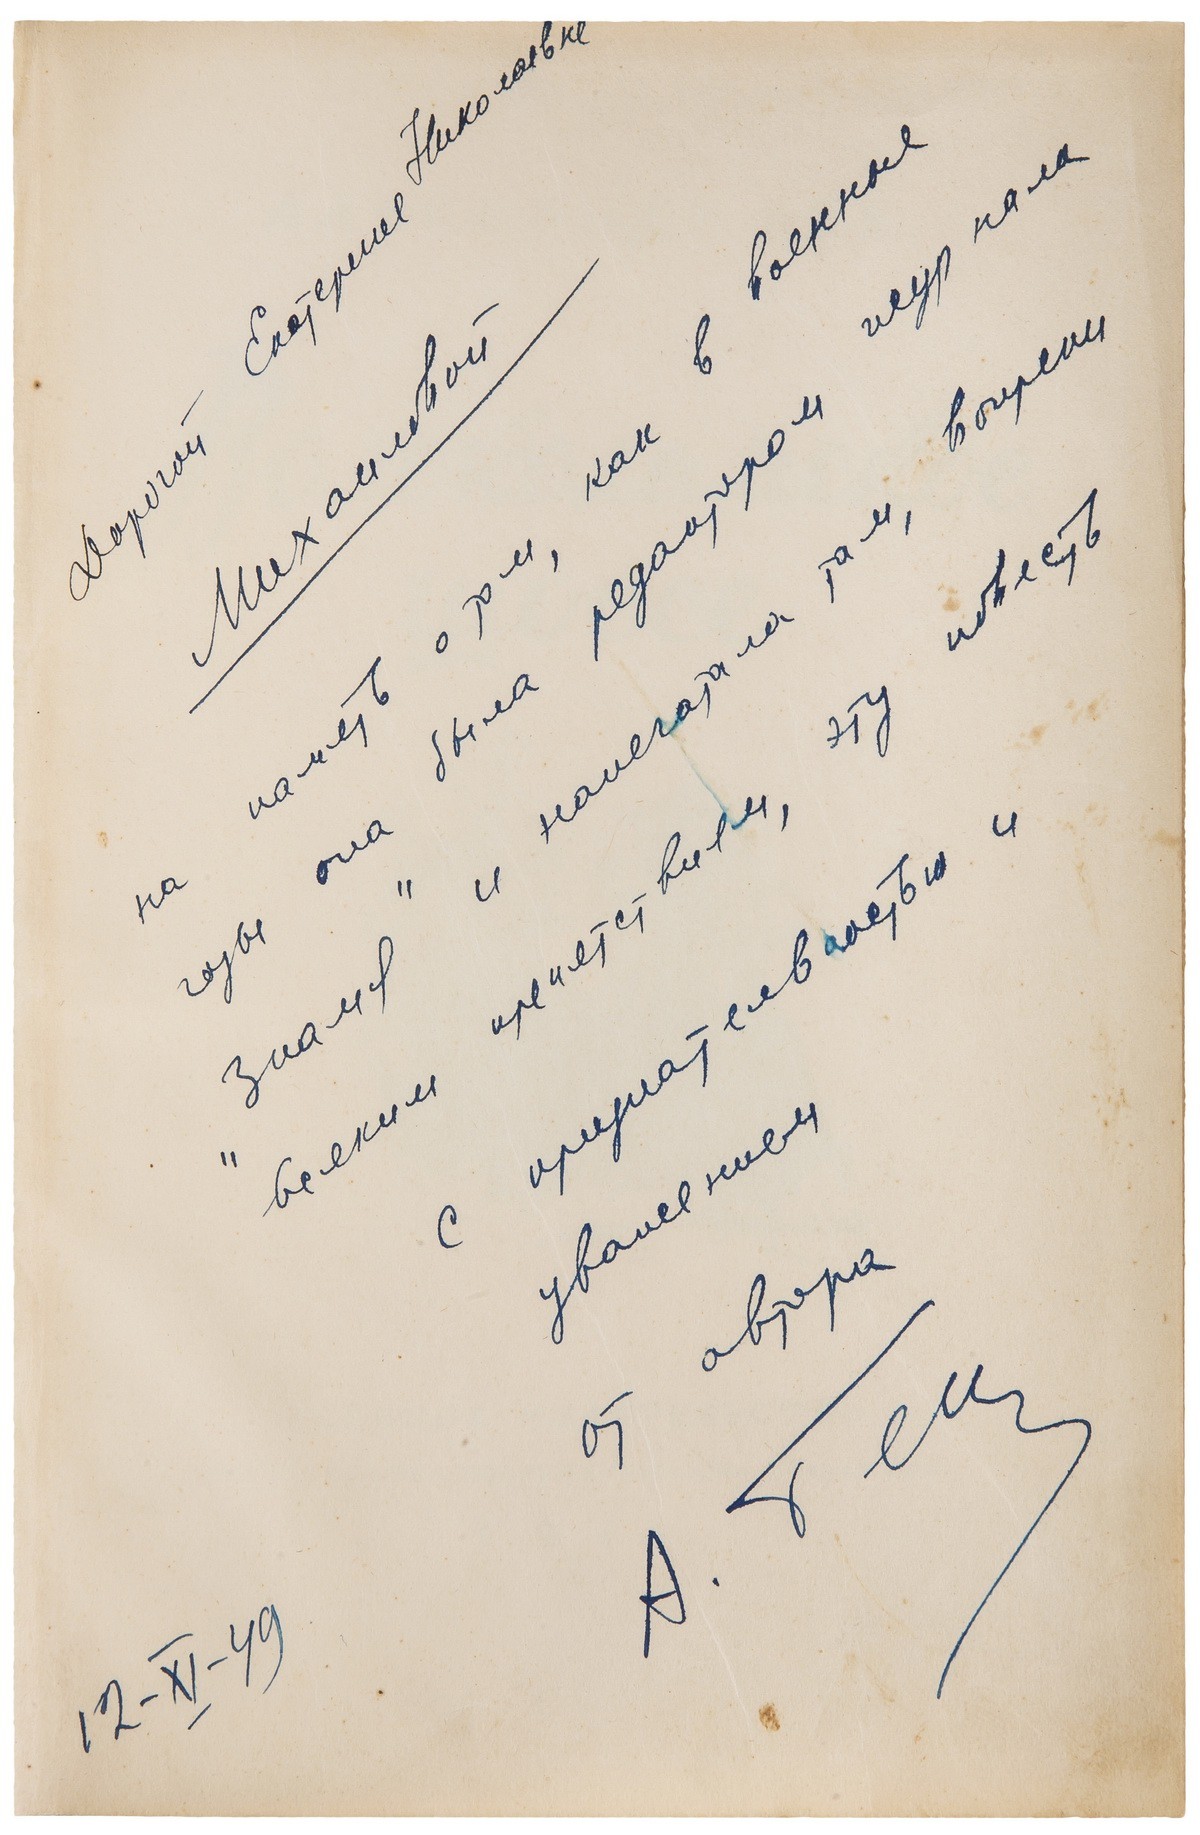 Дорогой Екатерине Николаевне
Михайловой
на память о том, как в военные
годы она была редактором журнала
"Знамя" и напечатала там, вопреки
всяким препятствиям, эту повесть
с признательностью и
уважением
от автора
А. Бек
12-XI-49